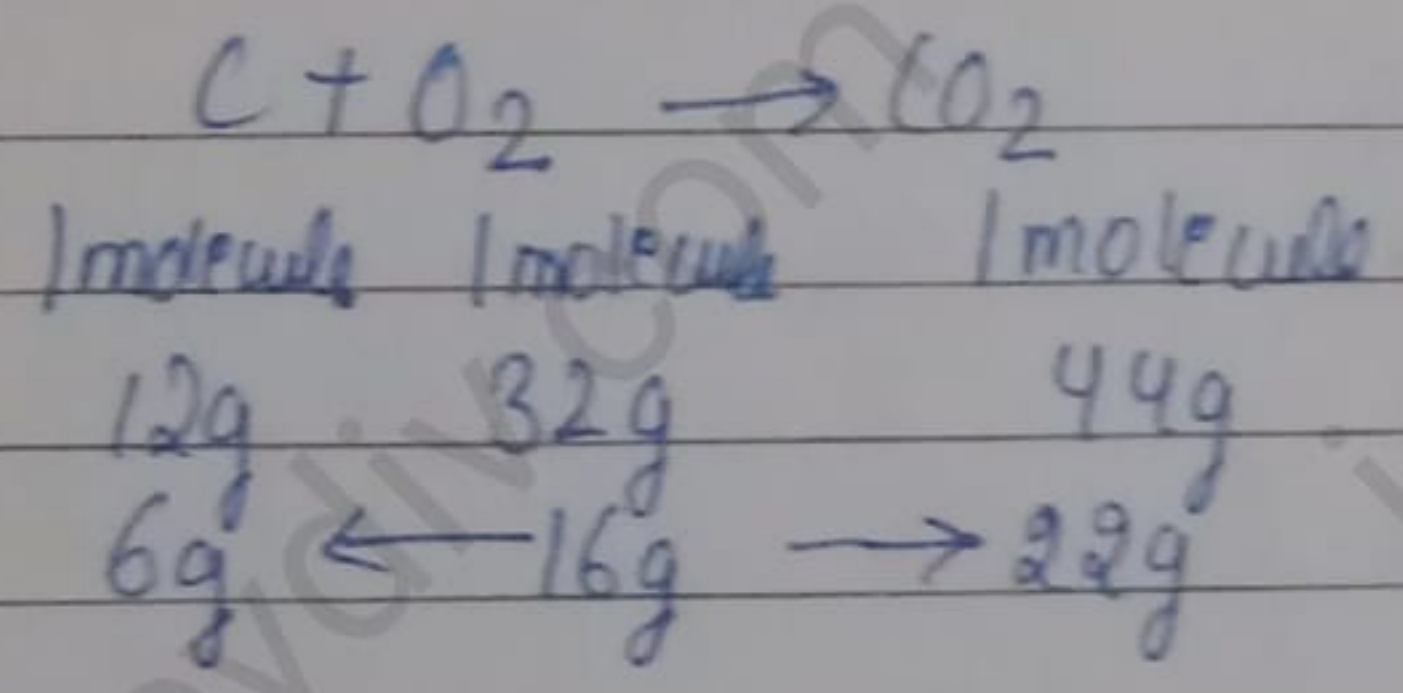 C + O₂ → CO₂
1 molecule 1 molecule 1 molecule
12g 32g 44g
6g ← 16g → 22g